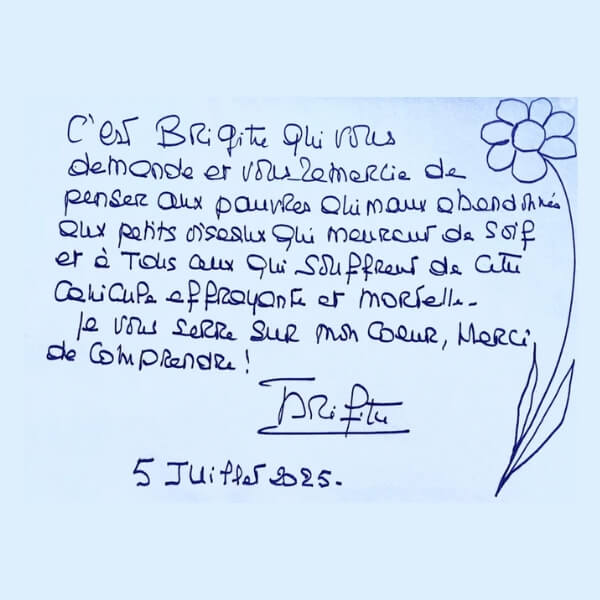 C'est Brigitte qui vous
demande et vous remercie de
penser aux pauvres animaux abandonnés
aux petits oiseaux qui meurent de soif
et à tous ceux qui souffrent de cette
canicule effroyante et mortelle.
Je vous serre sur mon coeur, Merci
de comprendre !
Brigitte
5 Juillet 2025.